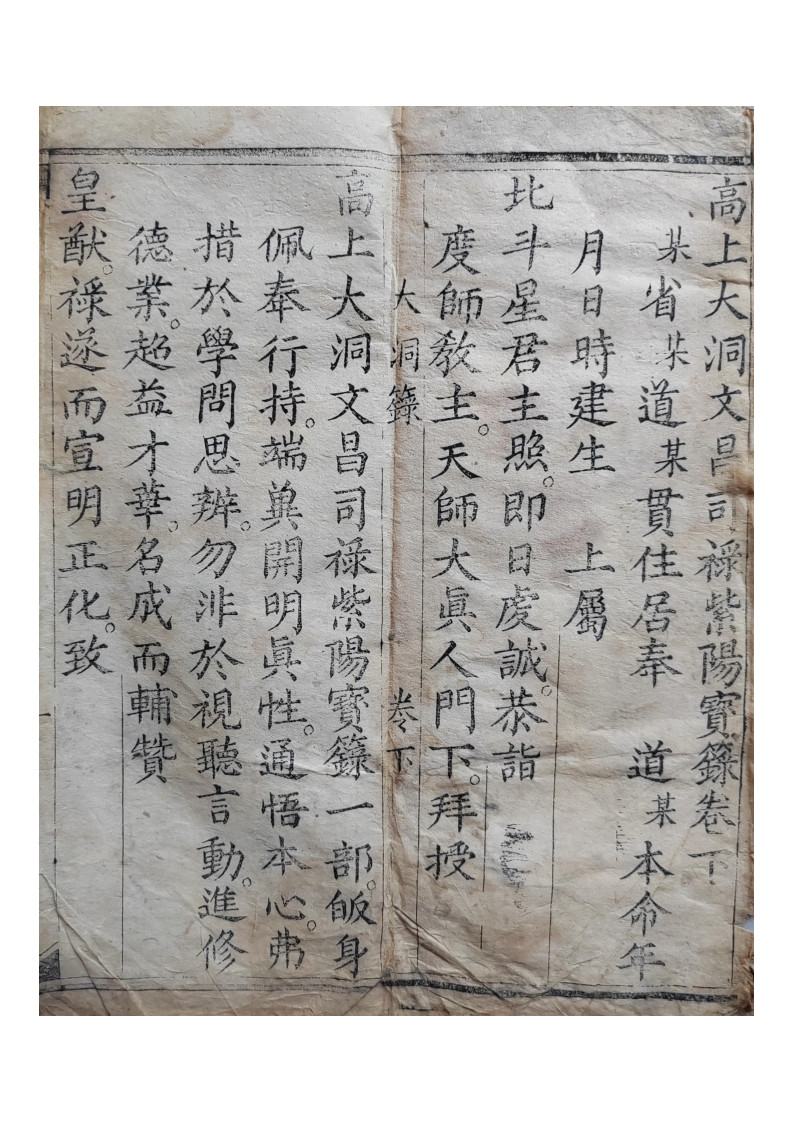 高上大洞文昌司祿紫陽寳籙卷下
某省某道某貫住居奉 道某本命年
月日時建生 上屬
北斗星君主照。即日虔誠。恭詣
度師教主。天師大眞人門下。拜授
大洞籙 卷下 一
高上大洞文昌司祿紫陽寳籙一部。皈身
佩奉行持。端冀開明眞性。通悟本心。弗
措於學問思辨。勿非於視聽言動。進修
德業。超益才華。名成而輔贊
皇猷。祿遂而宣明正化。致